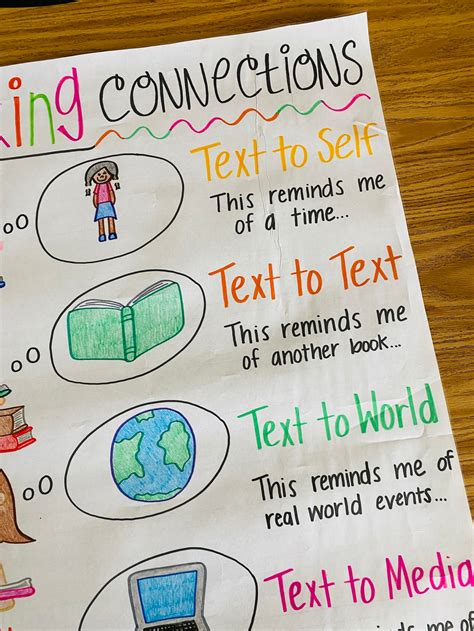 king CONNECTIONS
Text to Self
This reminds me
of a time...
Text to Text
This reminds me
of another book...
Text to World
This reminds me of
real world events...
Text to Media
reminds me of